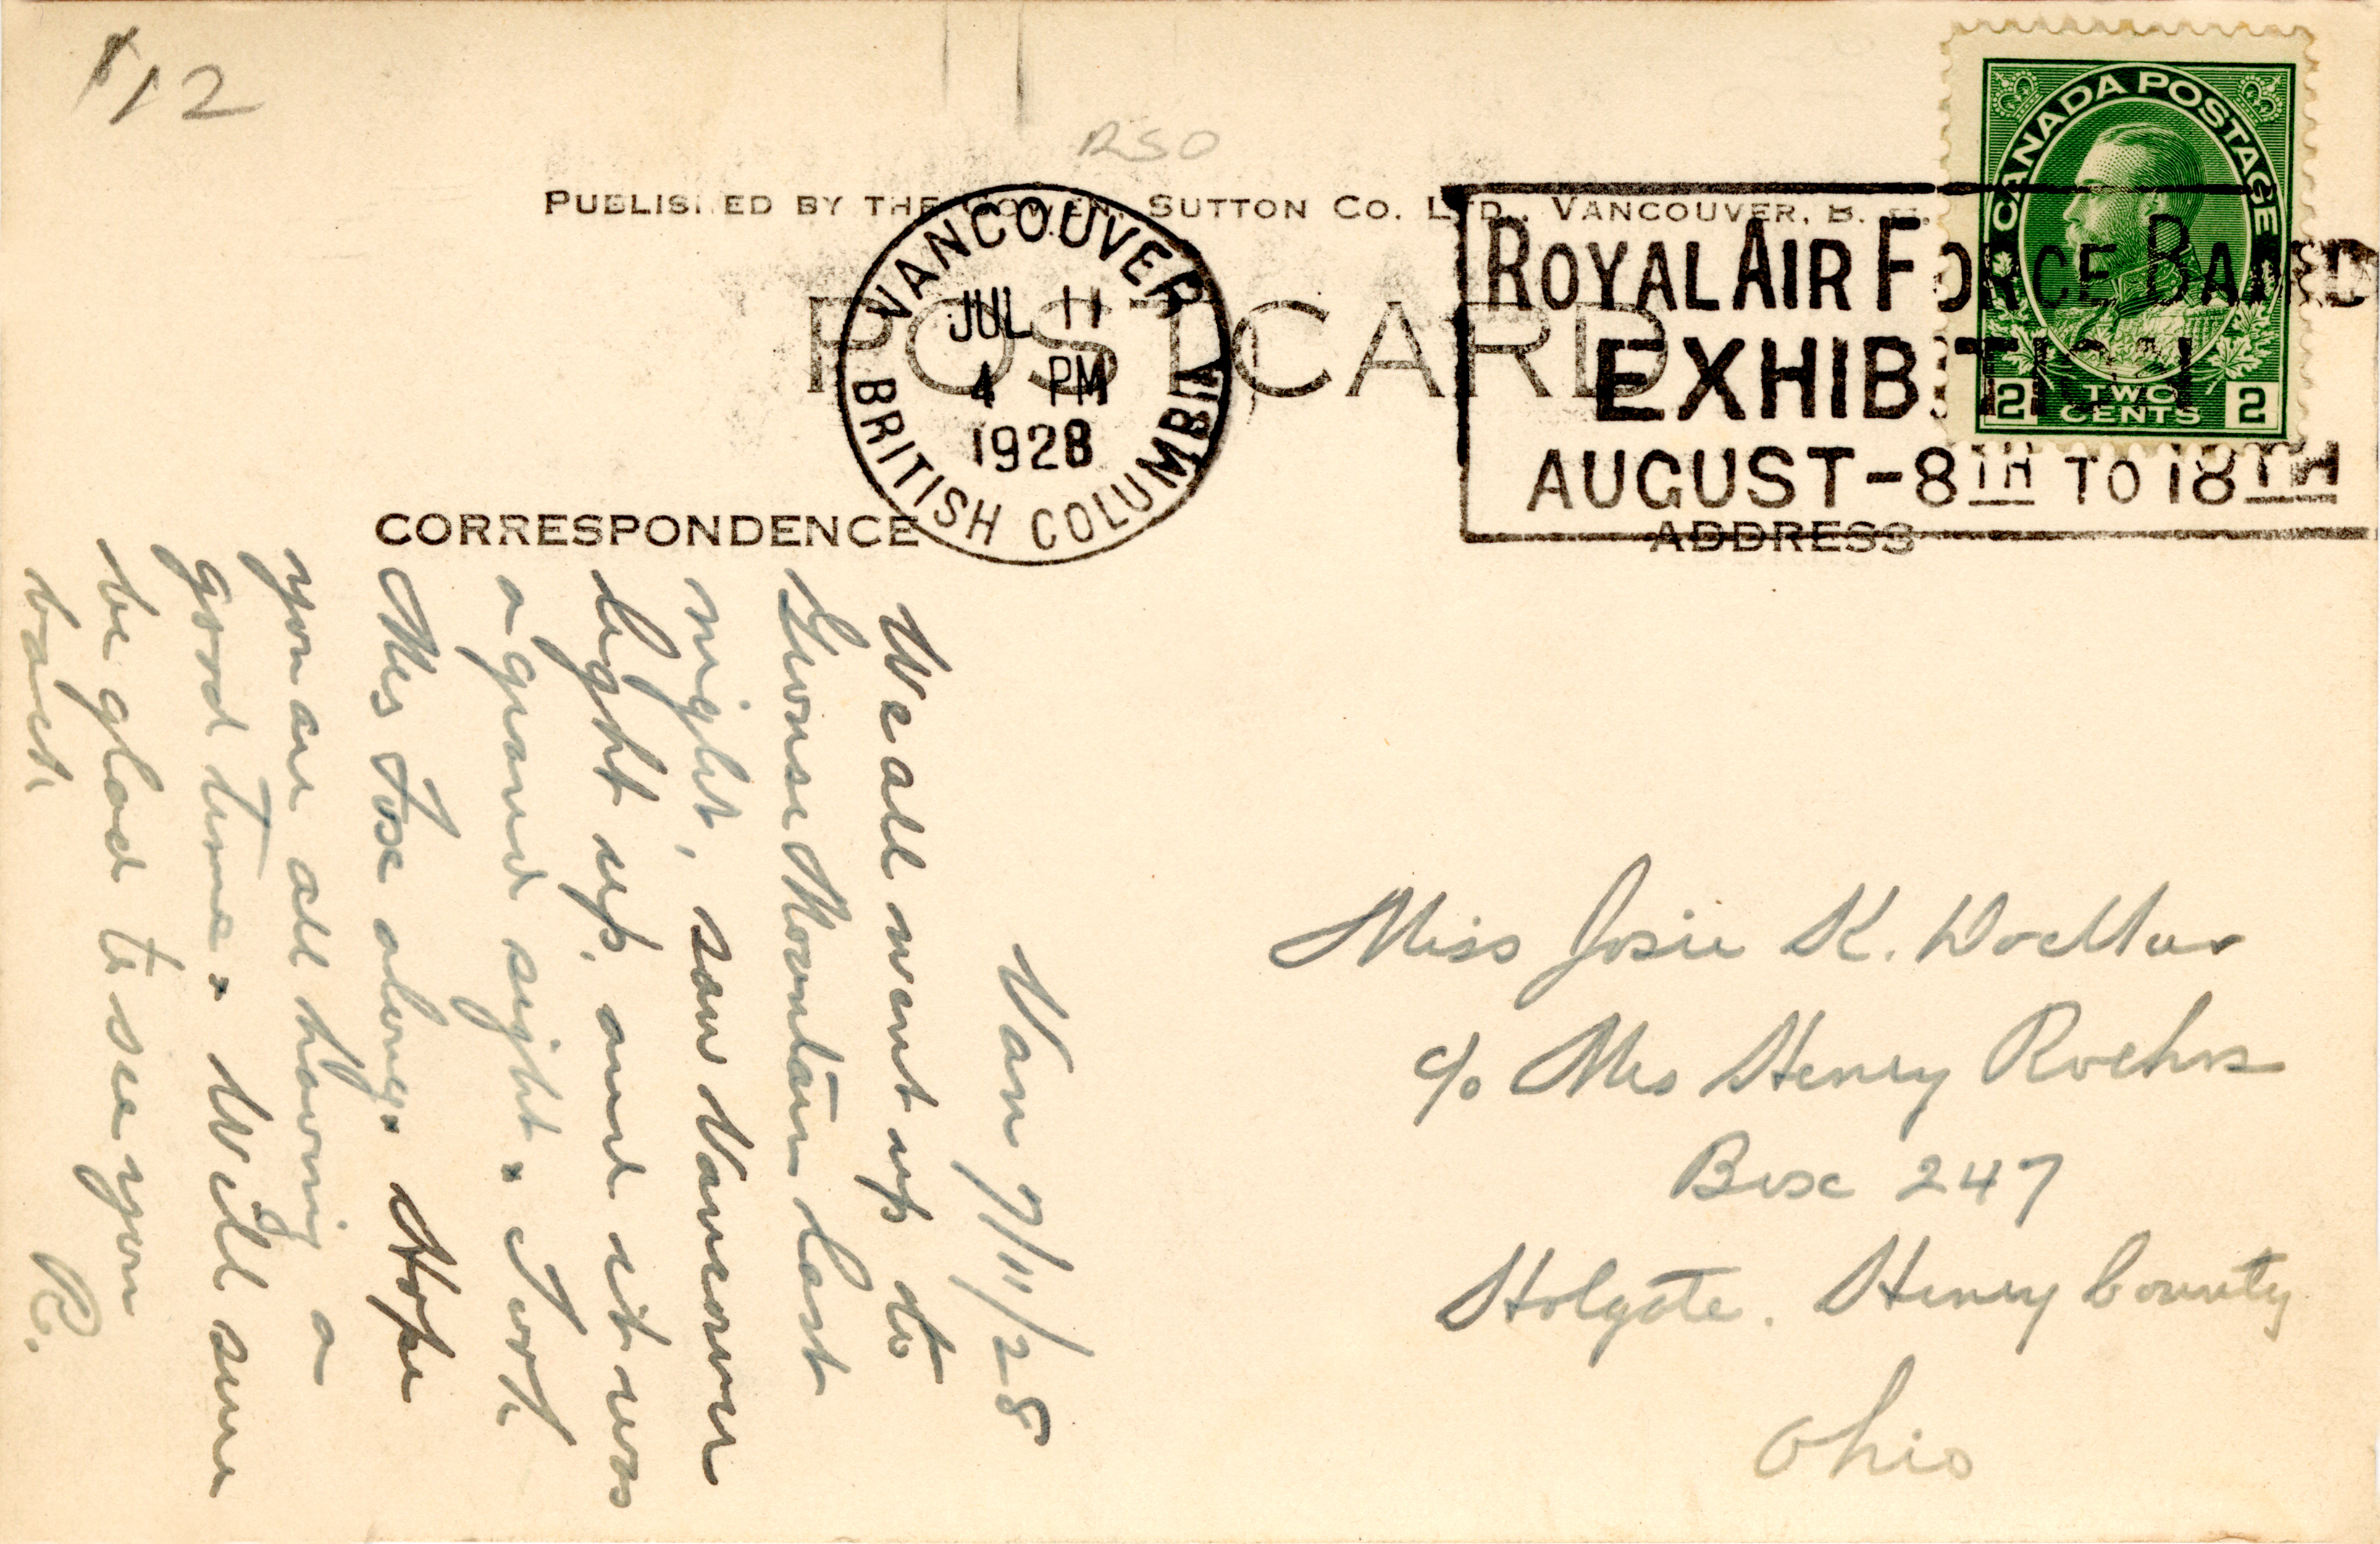 $12
RSO
PUBLISHED BY THE GOWEN, SUTTON CO. LTD., VANCOUVER, B. C.
POST CARD
VANCOUVER
JUL 11
4 PM
1928
BRITISH COLUMBIA
ROYAL AIR FORCE BAND
EXHIBITION
AUGUST-8TH TO 18TH
CANADA POSTAGE
2 TWO CENTS 2
CORRESPONDENCE
ADDRESS
Van 7/11/28
We all went up to
Grouse Mountain last
night, saw Vancouver
light up, and it was
a grand sight. Took
Mrs Fox along. Hope
you are all having a
good time. Will sure
be glad to see you
back.
R.
Miss Josie K.
c/o Mrs Henry Roehrs
Box 247
Holgate. Henry County
Ohio